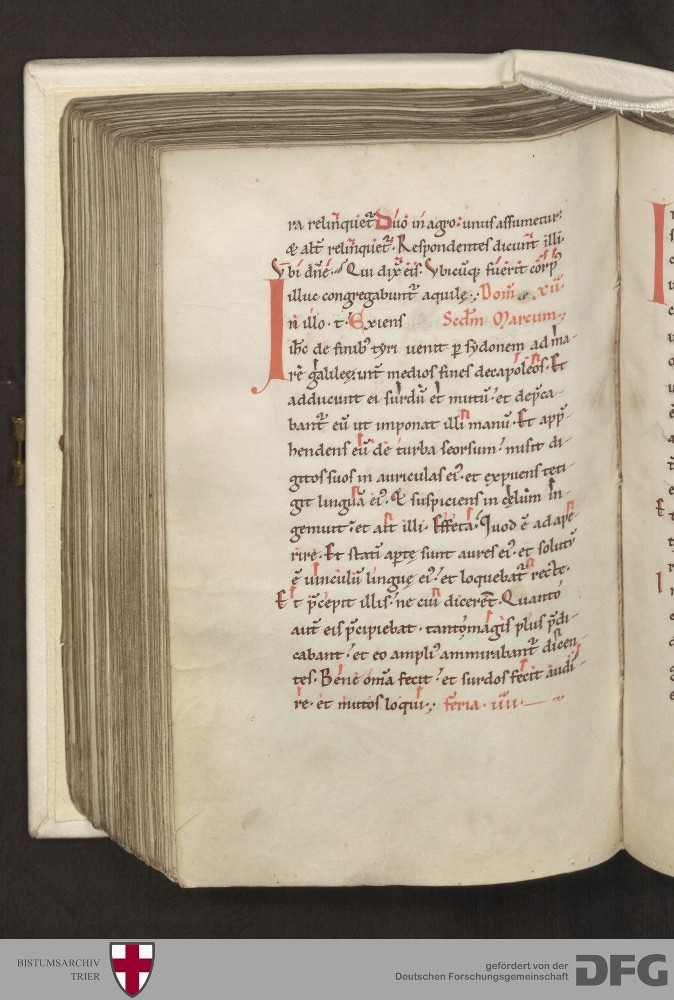 ra relinq̃uiet᷑ Duo in agro: unus assumetur:
& alt̃ relinquiet᷑. Respondentes dicunt illi.
Vbi dñe. Qui dix̃ eis. Vbicũq; fuerit corp᷒
illuc congregabunt᷑ aquilę. Dom̃ xii.
In illo. t. Exiens Scdm Marcum.
ih̃c de finib᷒ tyri uenit p sydonem ad ma
rẽ galileę; int̃ medios fines decapoleos. Et
adducunt ei surdũ et mutũ. et dep̃ca
bant᷑ eũ ut imponat illi manũ. Et app̃
hendens eũ de turba seorsum. misit di
gitos suos in auriculas ei᷒. et expuens teti
git linguã ei᷒. & suspiciens in cęlum in
gemuit. et ait illi. Effeta. Quod ẽ adape
rire. Et statĩ aptę sunt aures ei᷒. et solutũ
ẽ uinculũ linguę ei᷒. et loquebat᷑ recte.
Et p̃cepit illis. ne cui dicerẽt. Quanto
aut̃ eis p̃cipiebat. tanto magis plus p̃di
cabant. et eo ampli᷒ ammirabant᷑ dicen
tes. Bene om̃a fecit. et surdos fecit audi
re. et mutos loqui. feria. iiii.
BISTUMSARCHIV
TRIER
gefördert von der
Deutschen Forschungsgemeinschaft
DFG